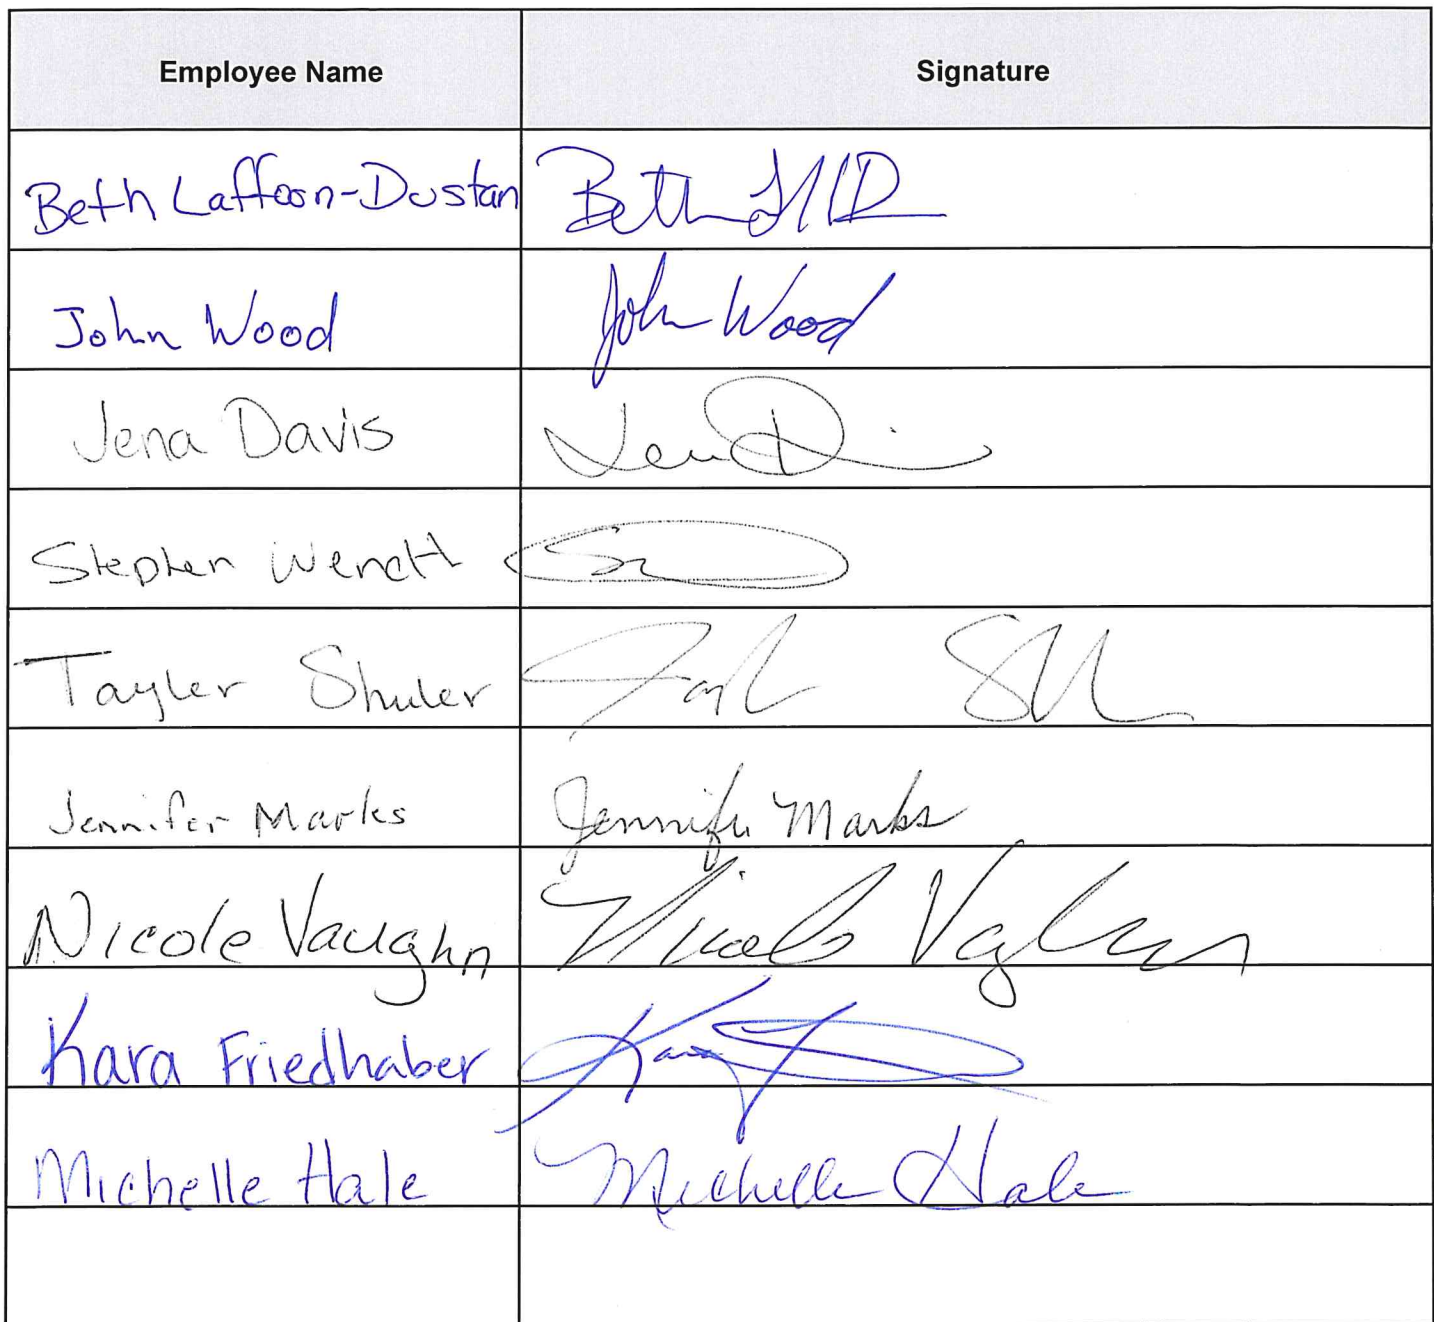 Employee Name Signature
Beth Laffoon-Dustan Beth
John Wood John Wood
Jena Davis
Stephen Wendt
Tayler Shuler
Jennifer Marks Jennifer Marks
Nicole Vaughn Nicole Vaughn
Kara Friedhaber Kara
Michelle Hale Michelle Hale